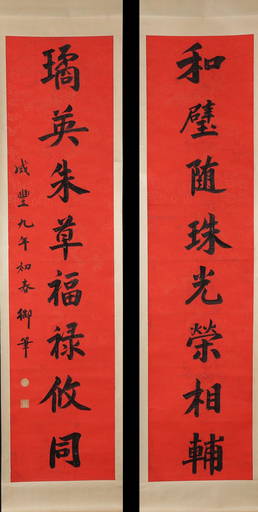 和璧随珠光榮相輔
璚英朱草福禄攸同
咸豐九年初春御筆